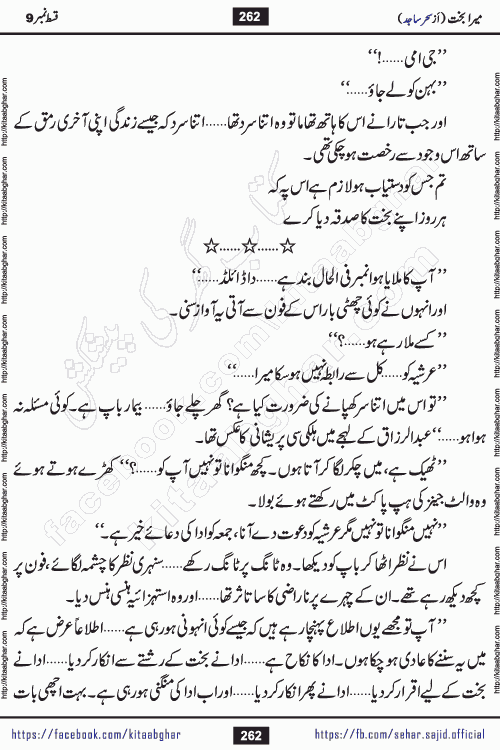 میرا بخت (از سحر ساجد)
262
قسط نمبر 9
’’جی امی......!‘‘
’’بہن کو لے جاؤ......‘‘
اور جب تارا نے اس کا ہاتھ تھاما تو وہ اتنا سرد تھا......اتنا سرد کہ جیسے زندگی اپنی آخری رمق کے
ساتھ اس وجود سے رخصت ہو چکی تھی۔
تم جس کو دستیاب ہو لازم ہے اس پہ کہ
ہر روز اپنے بخت کا صدقہ دیا کرے
☆......☆......☆
’’آپ کا ملایا ہوا نمبر فی الحال بند ہے......دا ڈائلڈ......‘‘
اور انہوں نے کوئی چھٹی بار اس کے فون سے آتی یہ آواز سنی۔
’’کسے ملا رہے ہو......؟‘‘
’’عرشیہ کو......کل سے رابطہ نہیں ہو سکا میرا......‘‘
’’تو اس میں اتنا سر کھپانے کی ضرورت کیا ہے؟ گھر چلے جاؤ......بیمار باپ ہے۔ کوئی مسئلہ نہ
ہوا ہو......‘‘ عبدالرزاق کے لہجے میں ہلکی سی پریشانی کا عکس تھا۔
’’ٹھیک ہے، میں چکر لگا کر آتا ہوں۔ کچھ منگوانا تو نہیں آپ کو......؟‘‘ کھڑے ہوتے ہوئے
وہ والٹ جینز کی ہپ پاکٹ میں رکھتے ہوئے بولا۔
’’نہیں منگوانا تو نہیں مگر عرشیہ کو دعوت دے آنا، جمعہ کو ادا کی دعائے خیر ہے۔‘‘
اس نے نظر اٹھا کر باپ کو دیکھا۔ وہ ٹانگ پر ٹانگ رکھے......سنہری نظر کا چشمہ لگائے، فون پر
کچھ دیکھ رہے تھے۔ ان کے چہرے پر ناراضی کا سا تاثر تھا......اور وہ استہزائیہ ہنسی ہنس دیا۔
’’آپ تو مجھے یوں اطلاع پہنچا رہے ہیں کہ جیسے کوئی انہونی ہو رہی ہے......اطلاعاً عرض ہے کہ
میں یہ سننے کا عادی ہو چکا ہوں۔ ادا کا نکاح ہے......ادا نے بخت کے رشتے سے انکار کر دیا......ادا نے
بخت کے لیے اقرار کر دیا......ادا نے پھر انکار کر دیا......اور اب ادا کی منگنی ہو رہی ہے۔ بہت اچھی بات
https://facebook.com/kitaabghar
262
https://fb.com/sehar.sajid.official
http://kitaabghar.com
facebook.com/kitaabghar
kitaabghar.com
کتاب گھر کی پیشکش